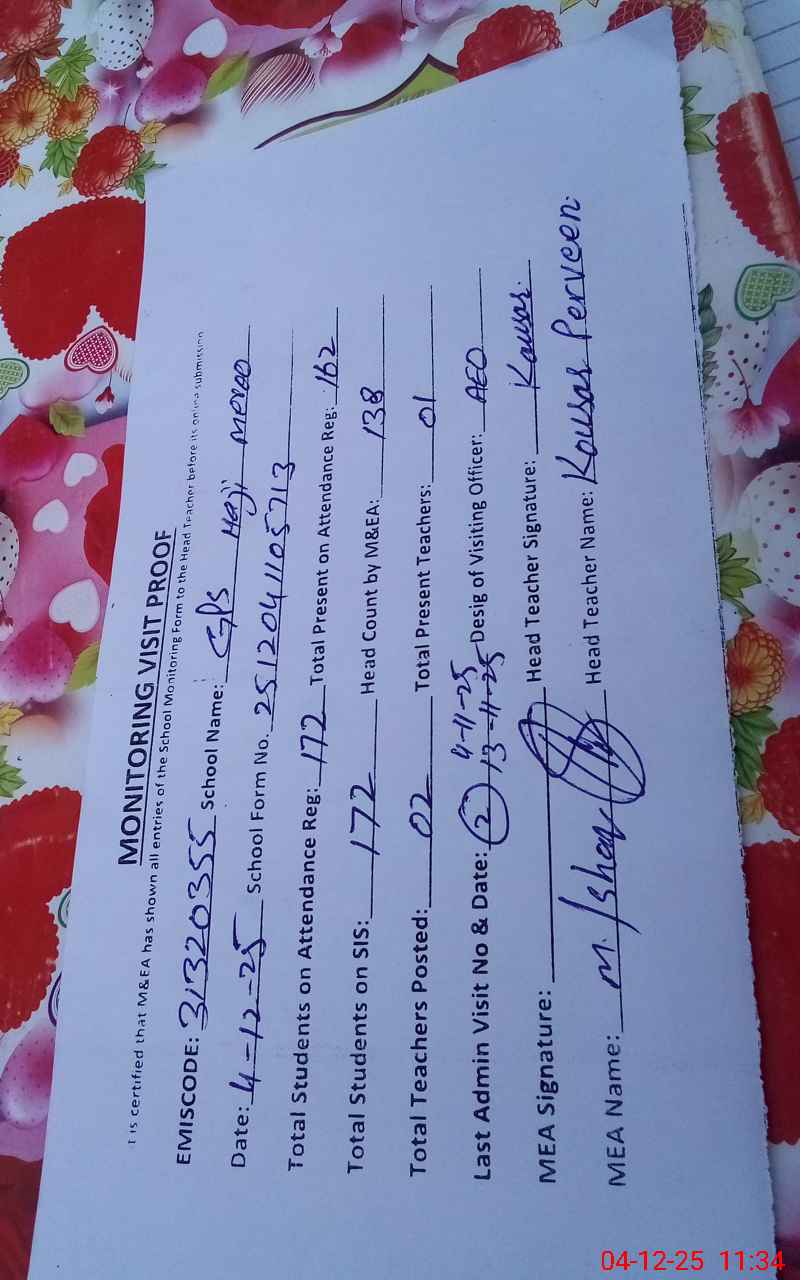 MONITORING VISIT PROOF
t is certified that M&EA has shown all entries of the School Monitoring Form to the Head Teacher before its online submission
EMISCODE: 31320355 School Name: GPS Haji Meroo
Date: 4-12-25 School Form No. 2512041105713
Total Students on Attendance Reg: 172 Total Present on Attendance Reg: 162
Total Students on SIS: 172 Head Count by M&EA: 138
Total Teachers Posted: 02 Total Present Teachers: 01
4-11-25
Last Admin Visit No & Date: 2 13-11-25 Desig of Visiting Officer: AEO
MEA Signature: Head Teacher Signature: Kousar.
MEA Name: M. Ishaq Head Teacher Name: Kousar Perveen.
04-12-25 11:34